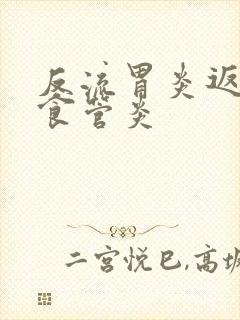 反流胃炎返
食管炎
二宫悦巳,高坂